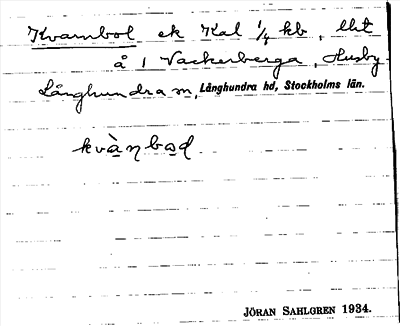 Kvarnbol ek Kal ¼ kb, lht
å 1 Vackerberga, Husby-
Långhundra sn, Långhundra hd, Stockholms län.
kvàṇboḍ
JÖRAN SAHLGREN 1934.